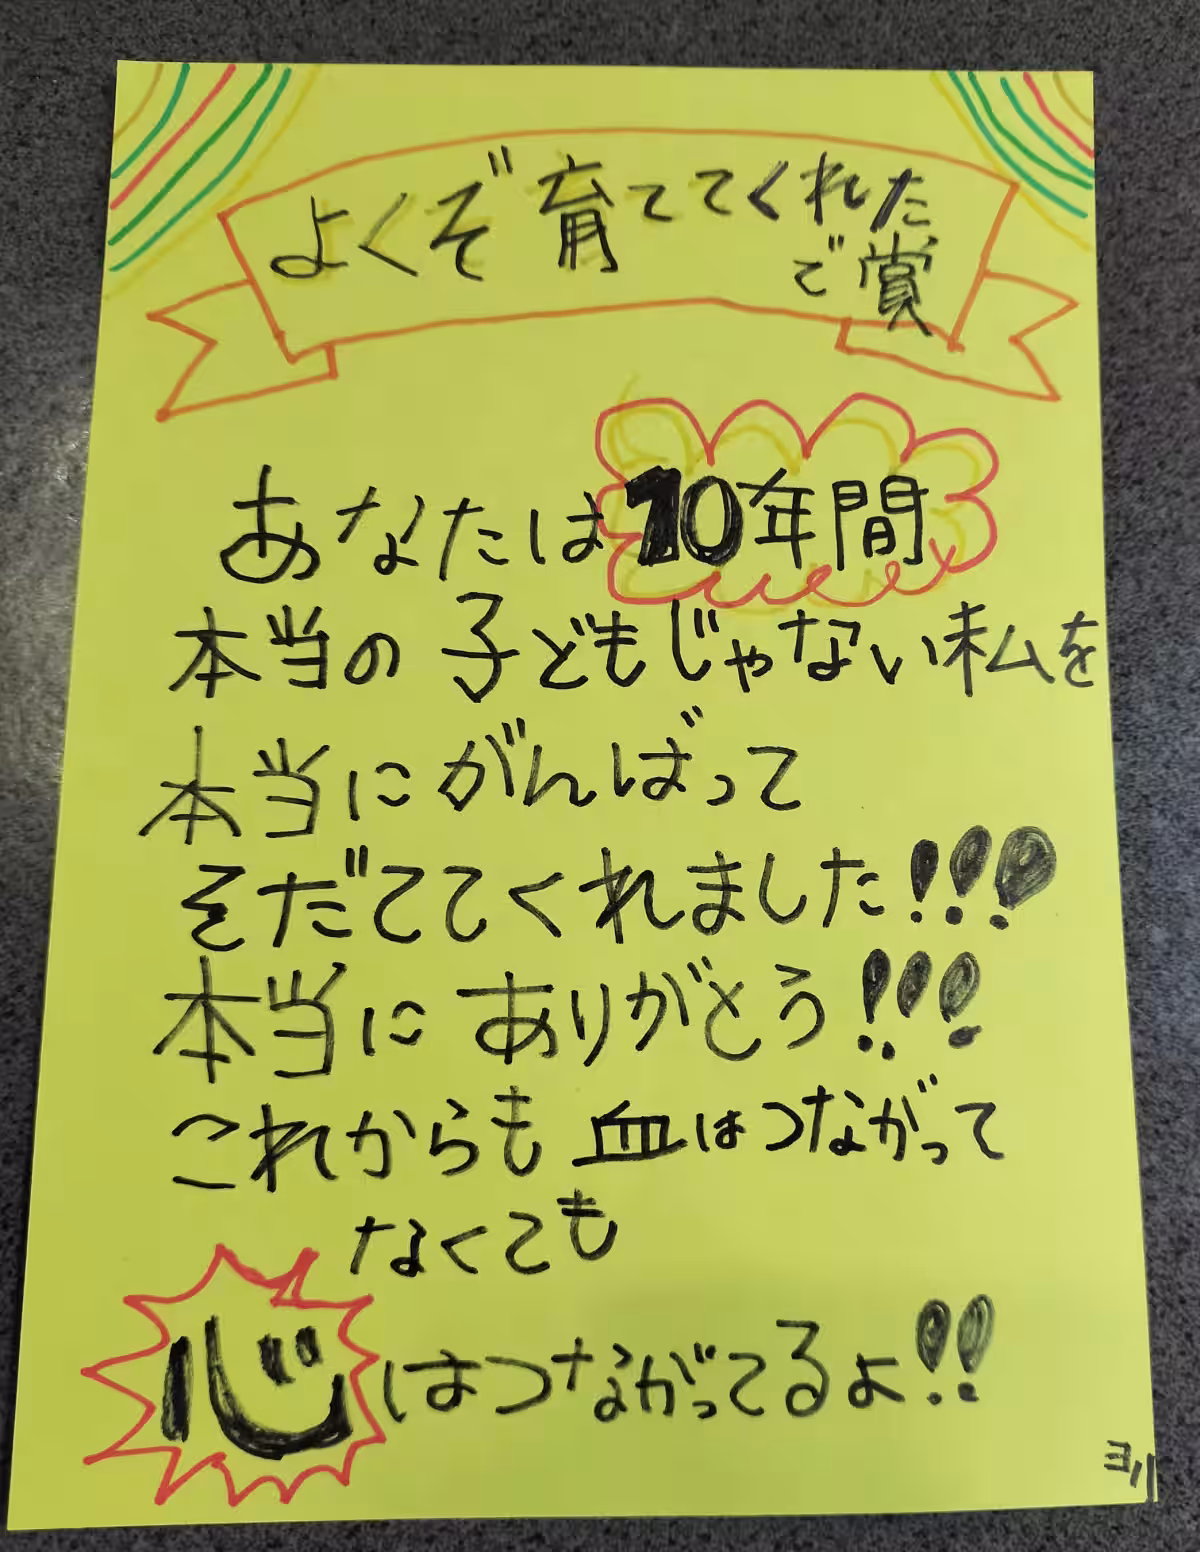 よくぞ育ててくれた
で賞
あなたは10年間
本当の子どもじゃない私を
本当にがんばって
そだててくれました!!!
本当にありがとう!!!
これからも血はつながって
なくても
心はつながってるよ!!